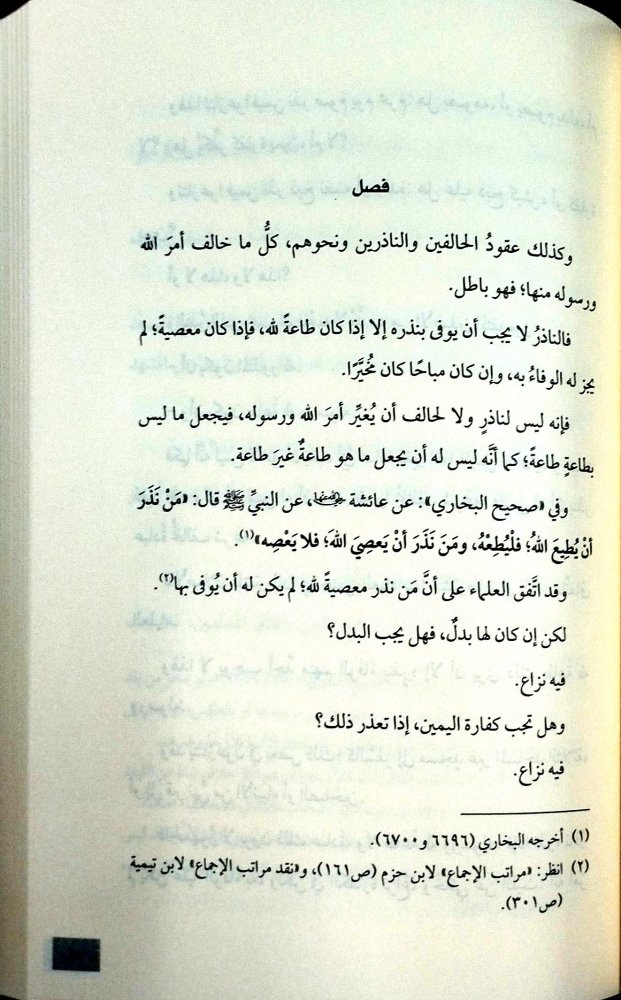 فصل
وكذلك عقودُ الحالفين والناذرين ونحوهم، كلُّ ما خالف أمرَ الله
ورسوله منها؛ فهو باطل.
فالناذرُ لا يجب أن يوفى بنذره إلا إذا كان طاعةً لله، فإذا كان معصيةً؛ لم
يجز له الوفاءُ به، وإن كان مباحًا كان مُخيَّرًا.
فإنه ليس لناذرٍ ولا لحالف أن يُغيِّر أمرَ الله ورسوله، فيجعل ما ليس
بطاعةٍ طاعةً؛ كما أنَّه ليس له أن يجعل ما هو طاعةٌ غيرَ طاعة.
وفي «صحيح البخاري»: عن عائشة رضي الله عنها، عن النبيِّ ﷺ قال: «مَنْ نَذَرَ
أنْ يُطِيعَ اللهَ؛ فلْيُطِعْهُ، ومَنَ نَذَرَ أنْ يَعصِيَ اللهَ؛ فلا يَعْصِه»(١).
وقد اتَّفق العلماء على أنَّ مَن نذر معصيةً لله؛ لم يكن له أن يُوفى بها(٢).
لكن إن كان لها بدلٌ، فهل يجب البدل؟
فيه نزاع.
وهل تجب كفارة اليمين، إذا تعذر ذلك؟
فيه نزاع.
(١) أخرجه البخاري (٦٦٩٦ و٦٧٠٠).
(٢) انظر: «مراتب الإجماع» لابن حزم (ص١٦١)، و«نقد مراتب الإجماع» لابن تيمية
(ص٣٠١).